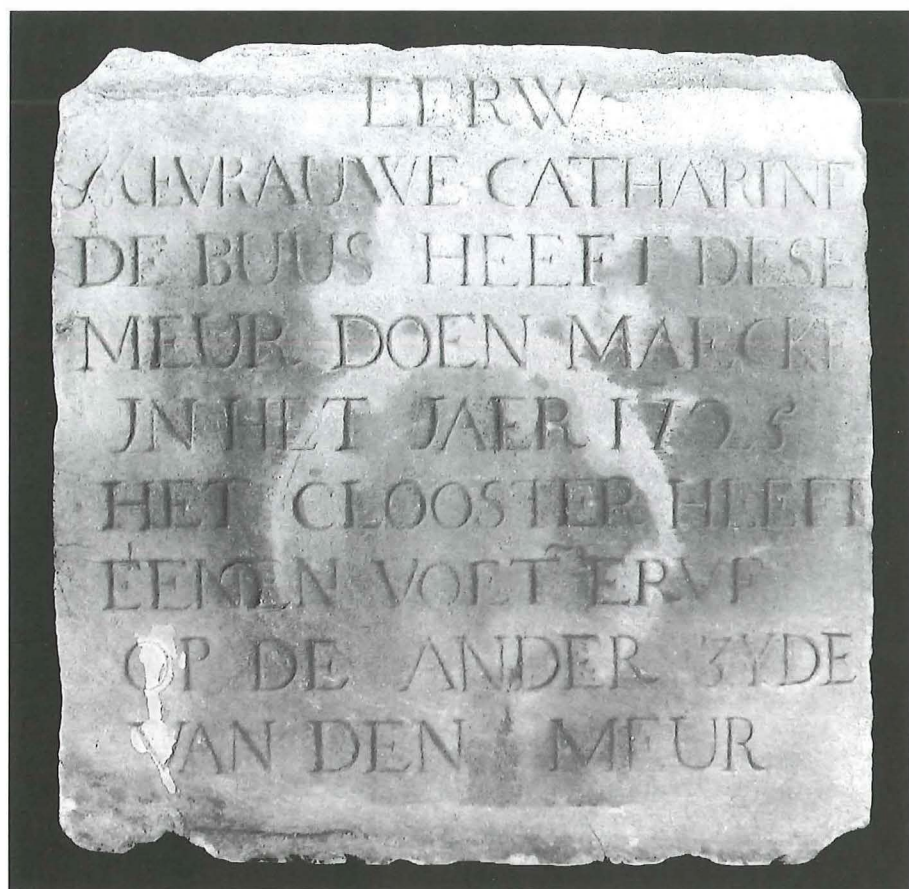 EERW
MEVRAUWE CATHARINE
DE BUUS HEEFT DESE
MEUR DOEN MAECKE
JN HET JAER 1725
HET CLOOSTER HEEFT
EENEN VOET ERVE
OP DE ANDER ZYDE
VAN DEN MEUR